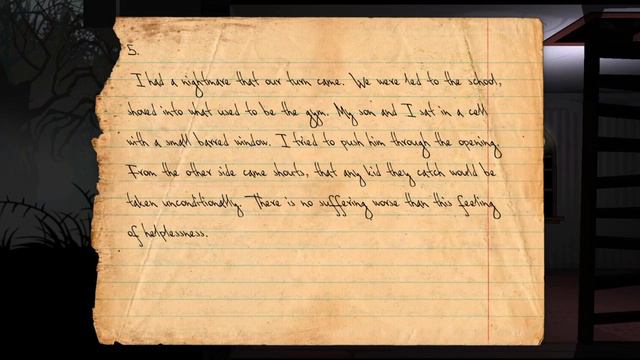 5.
I had a nightmare that our turn came. We were led to the school,
shoved into what used to be the gym. My son and I sat in a cell
with a small barred window. I tried to push him through the opening.
From the other side came shouts, that any kid they catch would be
taken unconditionally. There is no suffering worse than this feeling
of helplessness.